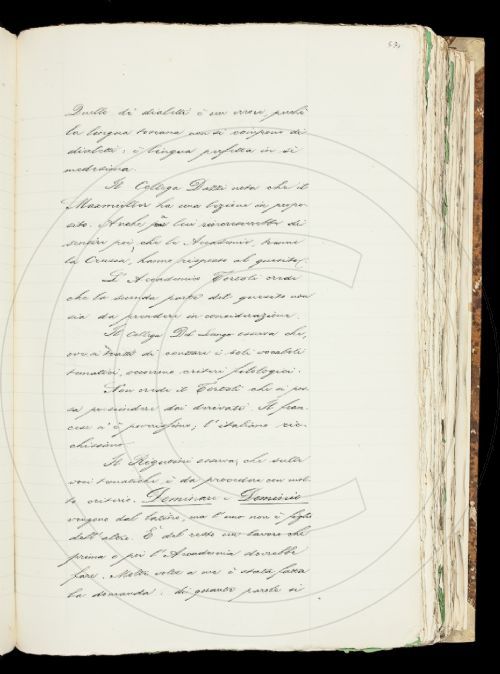 Quello di dialetti è un errore, perchè
la lingua toscana non si compone di
dialetti: è lingua perfetta in sè
medesima.
Il Collega Dazzi nota che il
Maxmüller ha una lezione in propo-
sito. Anche lui di
sentire poi, che le Accademie, tranne
la Crusca, hanno risposto al quesito.
L'Accademico Tortoli crede
che la seconda parte del quesito non
sia da prendere in considerazione.
Il Collega Del Lungo osserva che,
ove si tratti di contare i soli vocaboli
tematici, occorrono criteri filologici.
Non crede il Tortoli che si pos-
sa prescindere dai derivati. Il fran-
cese n'è poverissimo; l'italiano ric-
chissimo.
Il Rigutini osserva, che sulle
voci tematiche è da procedere con mol-
to criterio. Dominare e Dominio
vengono dal latino, ma l'uno non è figlio
dell'altro. È del resto un lavoro che
prima o poi l'Accademia dovrebbe
fare. Molte volte a me è stata fatta
la domanda: di quante parole si